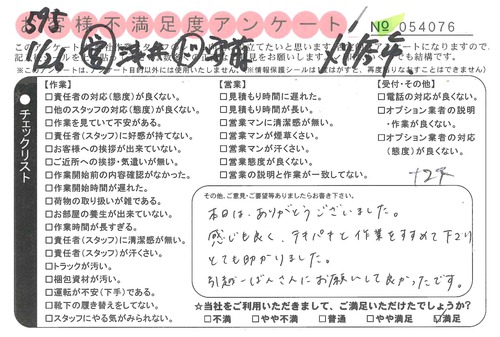 お客様不満足度アンケート
№ 054076
595
【作業】
□責任者の対応(態度)が良くない。
□他のスタッフの対応(態度)が良くない。
□作業を見ていて不安がある。
□責任者(スタッフ)に好感が持てない。
□お客様への挨拶が出来ていない。
□ご近所への挨拶・気遣いが無い。
□作業開始前の内容確認がなかった。
□作業開始時間が遅れた。
□荷物の取り扱いが雑である。
□お部屋の養生が出来ていない。
□作業時間が長すぎる。
□責任者(スタッフ)に清潔感が無い。
□責任者(スタッフ)が汗くさい。
□トラックが汚い。
□梱包資材が汚い。
□運転が不安(下手)である。
□靴下の履き替えをしてない。
□スタッフにやる気がみられない。
【営業】
□見積もり時間に遅れた。
□見積もり時間が長い。
□営業マンに清潔感が無い。
□営業マンが煙草くさい。
□営業マンが汗くさい。
□営業の態度が良くない。
□営業の説明と作業が一致してない。
【受付・その他】
□電話の対応が良くない。
□オプション業者の説明
・作業が良くない。
□オプション業者の対応
(態度)が良くない。
チェックリスト
その他、ご意見・ご要望等ありましたらお書き下さい。
本日は、ありがとうございました。
感じも良く、テキパキと作業をすすめて下さり
とても助かりました。
引越一ばんさんにお願いして良かったです。
☆当社をご利用いただきまして、ご満足いただけたでしょうか?
□不満 □やや不満 □普通 □やや満足 ☑満足